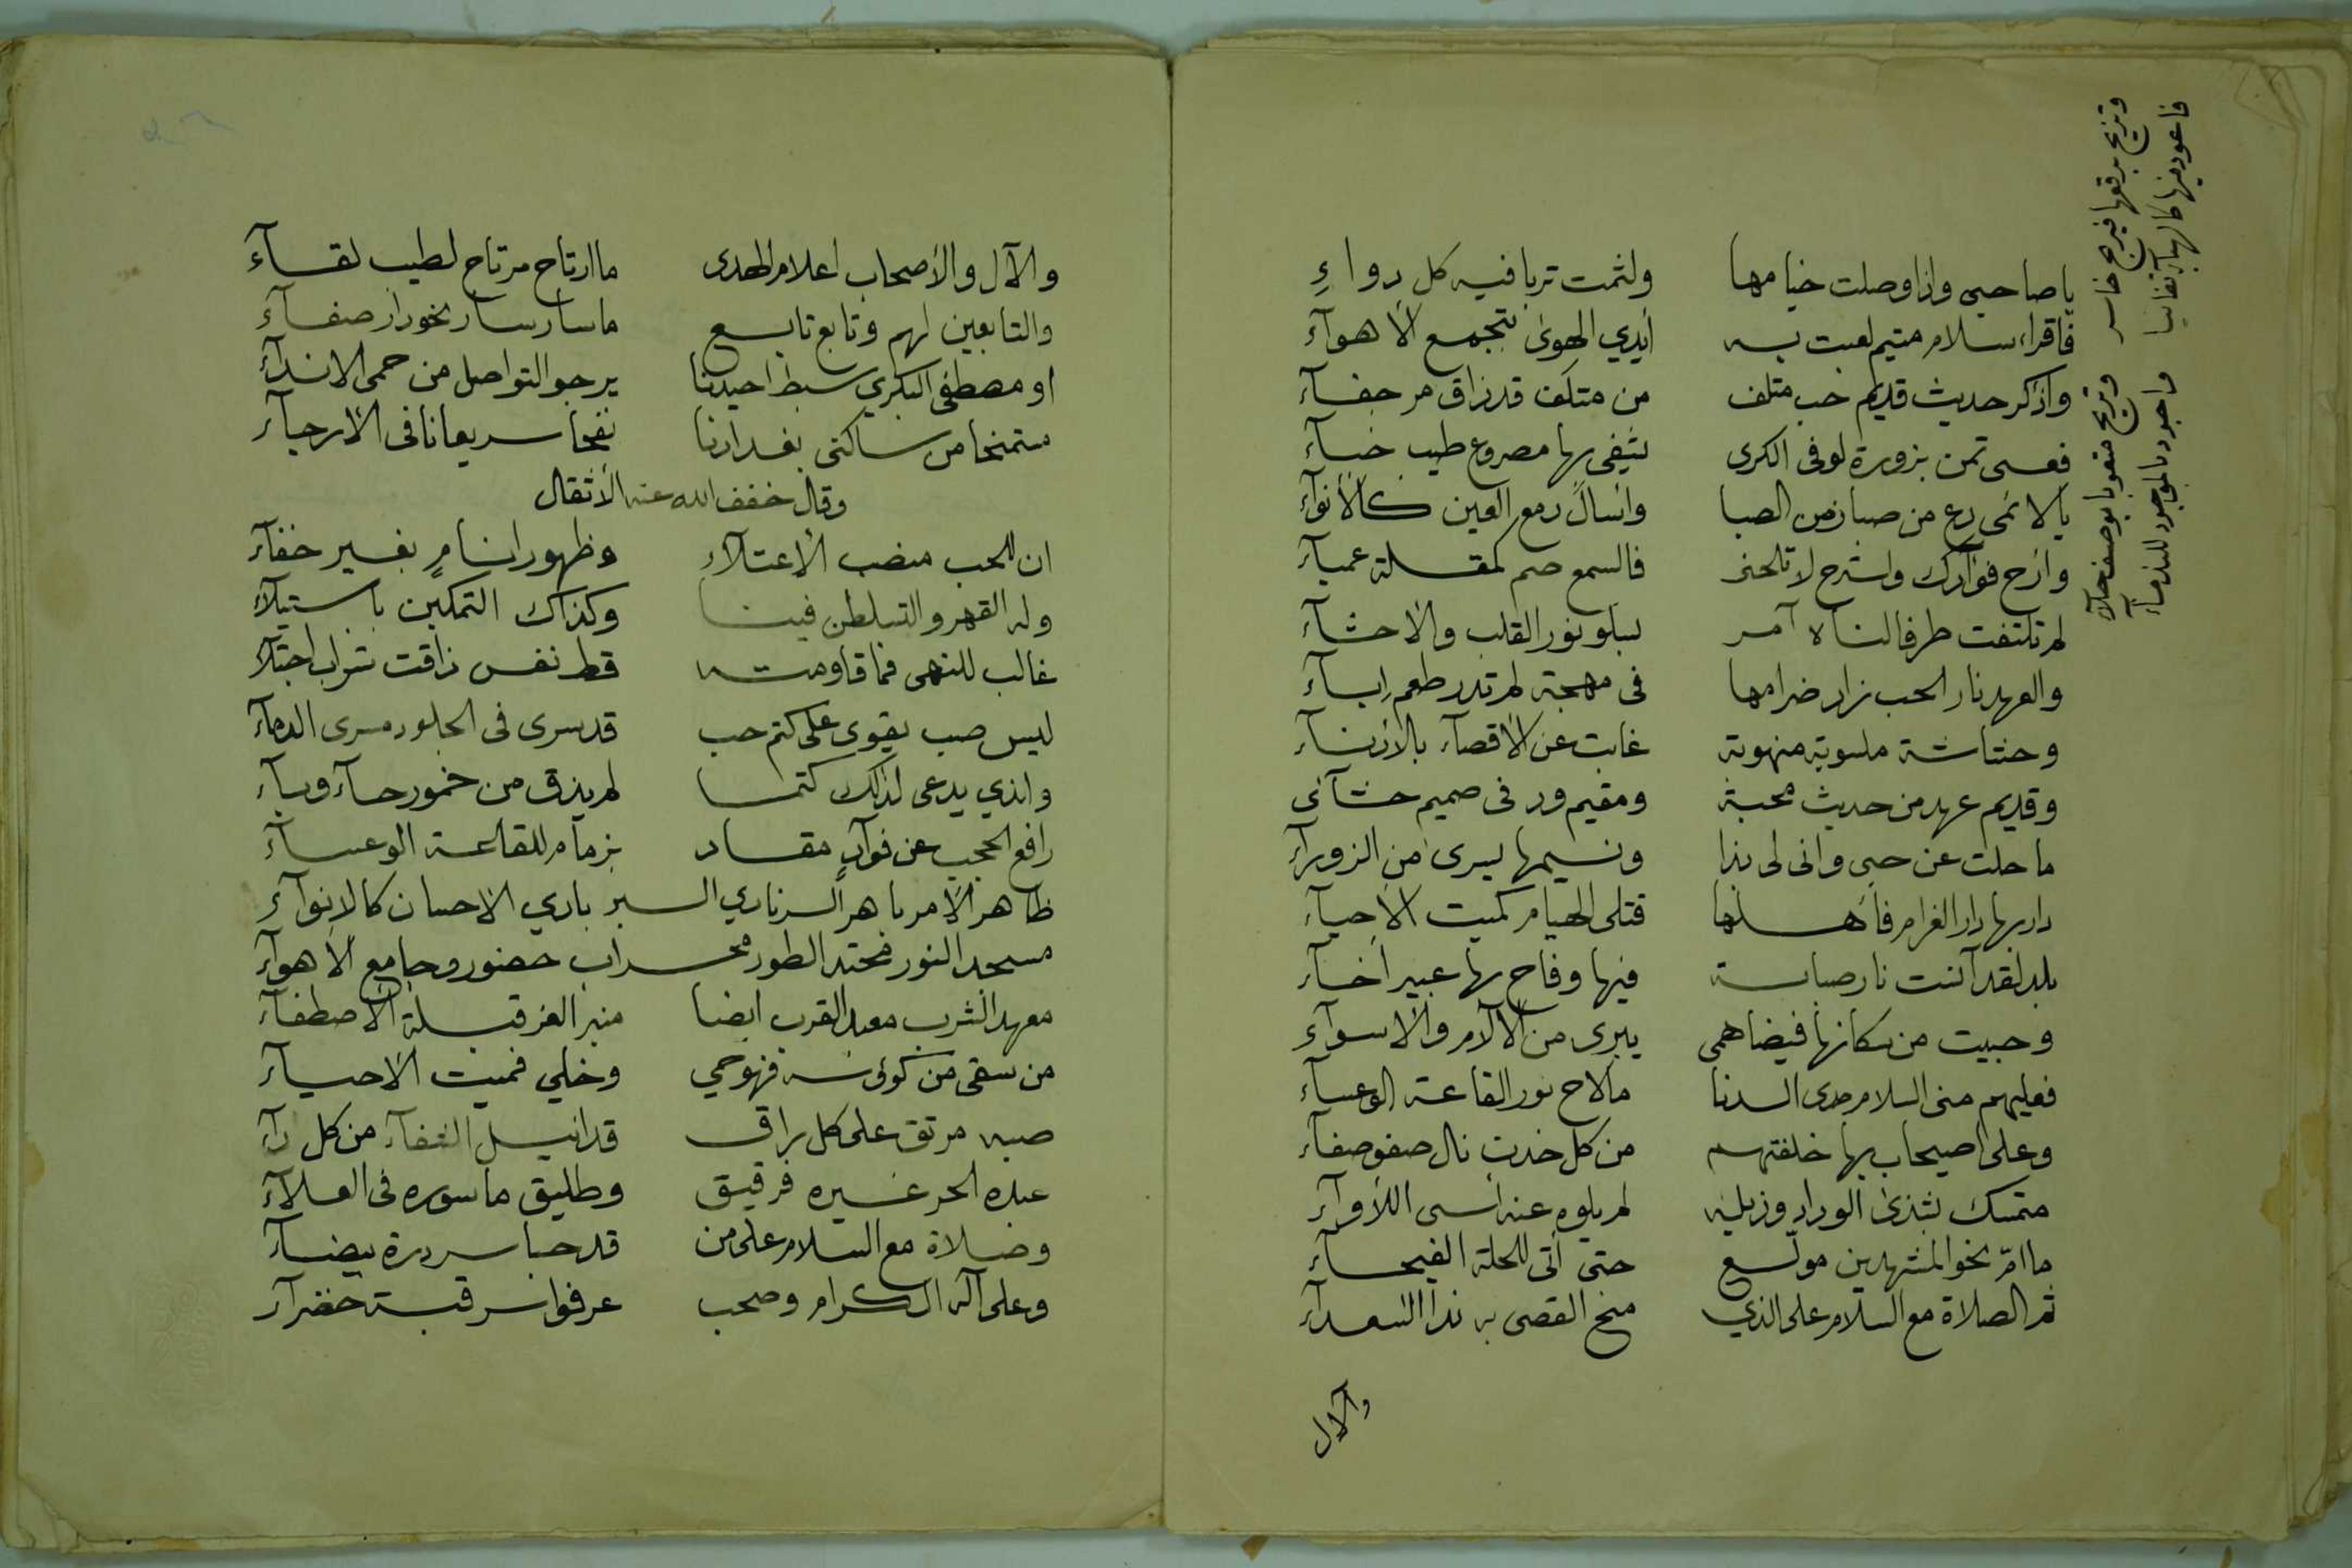 يا صاحبي واذا وصلت خيامها ولثمت تربا فيه كل دواءِ
فاقراء سلام متيم لعبت به أيدي الهوى بتجمع الأهوآء
واذكر حديث قديم حب متلف من متلف قد ذاق مر جفآء
فعسى تمن بزورة لو فى الكرى يشفى بها مصروع طيب خبآء
يا لائمى دع من صبا زمن الصبا وأسال دمع العين كالأنوآء
وازح فوآدك واسترح لا تلحنى فالسمع صم كمقلة عميآء
لم تلتفت طرفا لناه آمر يسلو بنور القلب والاحشآء
والعهد نار الحب زاد ضرامها فى مهجة لم تدر طعم إبآء
وحشاشة ملسوبة منهوبة غابت عن الأقصآء بالأدنآء
وقديم عهد من حديث محبة ومقيم ود فى صميم حشآئى
ما حلت عن حبى وانى لى بذا ونسيمها يسرى من الزورآء
دار بها دار الغرام فأهلها قتلى الهيام كميت الأحيآء
بلد لقد آنست نار صبابة فيها وفاح بها عبير أخآء
وحبيت من سكانها فيضا همى يبرى من الآلام والأسوآء
فعليهم منى السلام مدى الدنا ما لاح نور القاعة الوعسآء
وعلى اصيحاب بها خلفتهم من كل خدن نال صفو صفآء
متمسك بشذى الوداد وذيله لم يلوه عنه أسى اللأوآء
ما امّ نحو المشهدين مولّع حتى أتى للحلة الفيحآء
ثم الصلاة مع السلام على الذي منح القصى به ندا السعدآء
والآل
وتزيح برقعها فيرجح خاسر وتريح متعوبا بوصف خلآء
فاعود فيها كالهبآء تفانيا واجود بالموجود للندمآء
والآل والأصحاب اعلام الهدى ما ارتاح مرتاح لطيب لقآء
والتابعين لهم وتابع تابع ما سار سار نحو دار صفآء
او مصطفى البكري سبط احيدنا يرجو التواصل من حمى الاندآء
متمنحا من ساكنى بغدادنا نفحا سريعا نافى الأرجآء
وقال خفف الله عنه الأثقال
ان للحب منصب الأعتلآء وظهورا نامٍ بغير خفآء
وله القهر والتسلطن فينا وكذاك التمكين باستيلآء
غالب للنهى فما قاومته قط نفس ذاقت شراب اجتلآء
ليس صب يقوى على كتم حب قد سرى فى الجلود مسرى الدمآء
والذي يدعى لذلك كتما لم يذق من خمور حآء وبآء
رافع الحجب عن فوآدٍ مقاد بزمام للقاعة الوعسآء
ظاهر الأمر باهر السر نادي البر باري الاحسان كالانوآء
مسجد النور محتد الطور محراب حضور وجامع الأهوآء
معهد الشرب معبد القرب ايضا منبر العز قبلة الأصطفآء
من سقى من كؤسه فهو حي وخلي فميت الأحيآء
صبه مرتق على كل براق قد انيل الشفآء من كل دآء
عبده الحر غيره فرقيق وطليق ماسوره فى العلآء
وصلاة مع السلام على من قد حبا سر درة بيضآء
وعلى آله الكرام وصحب عرفوا سر قبة خضرآء